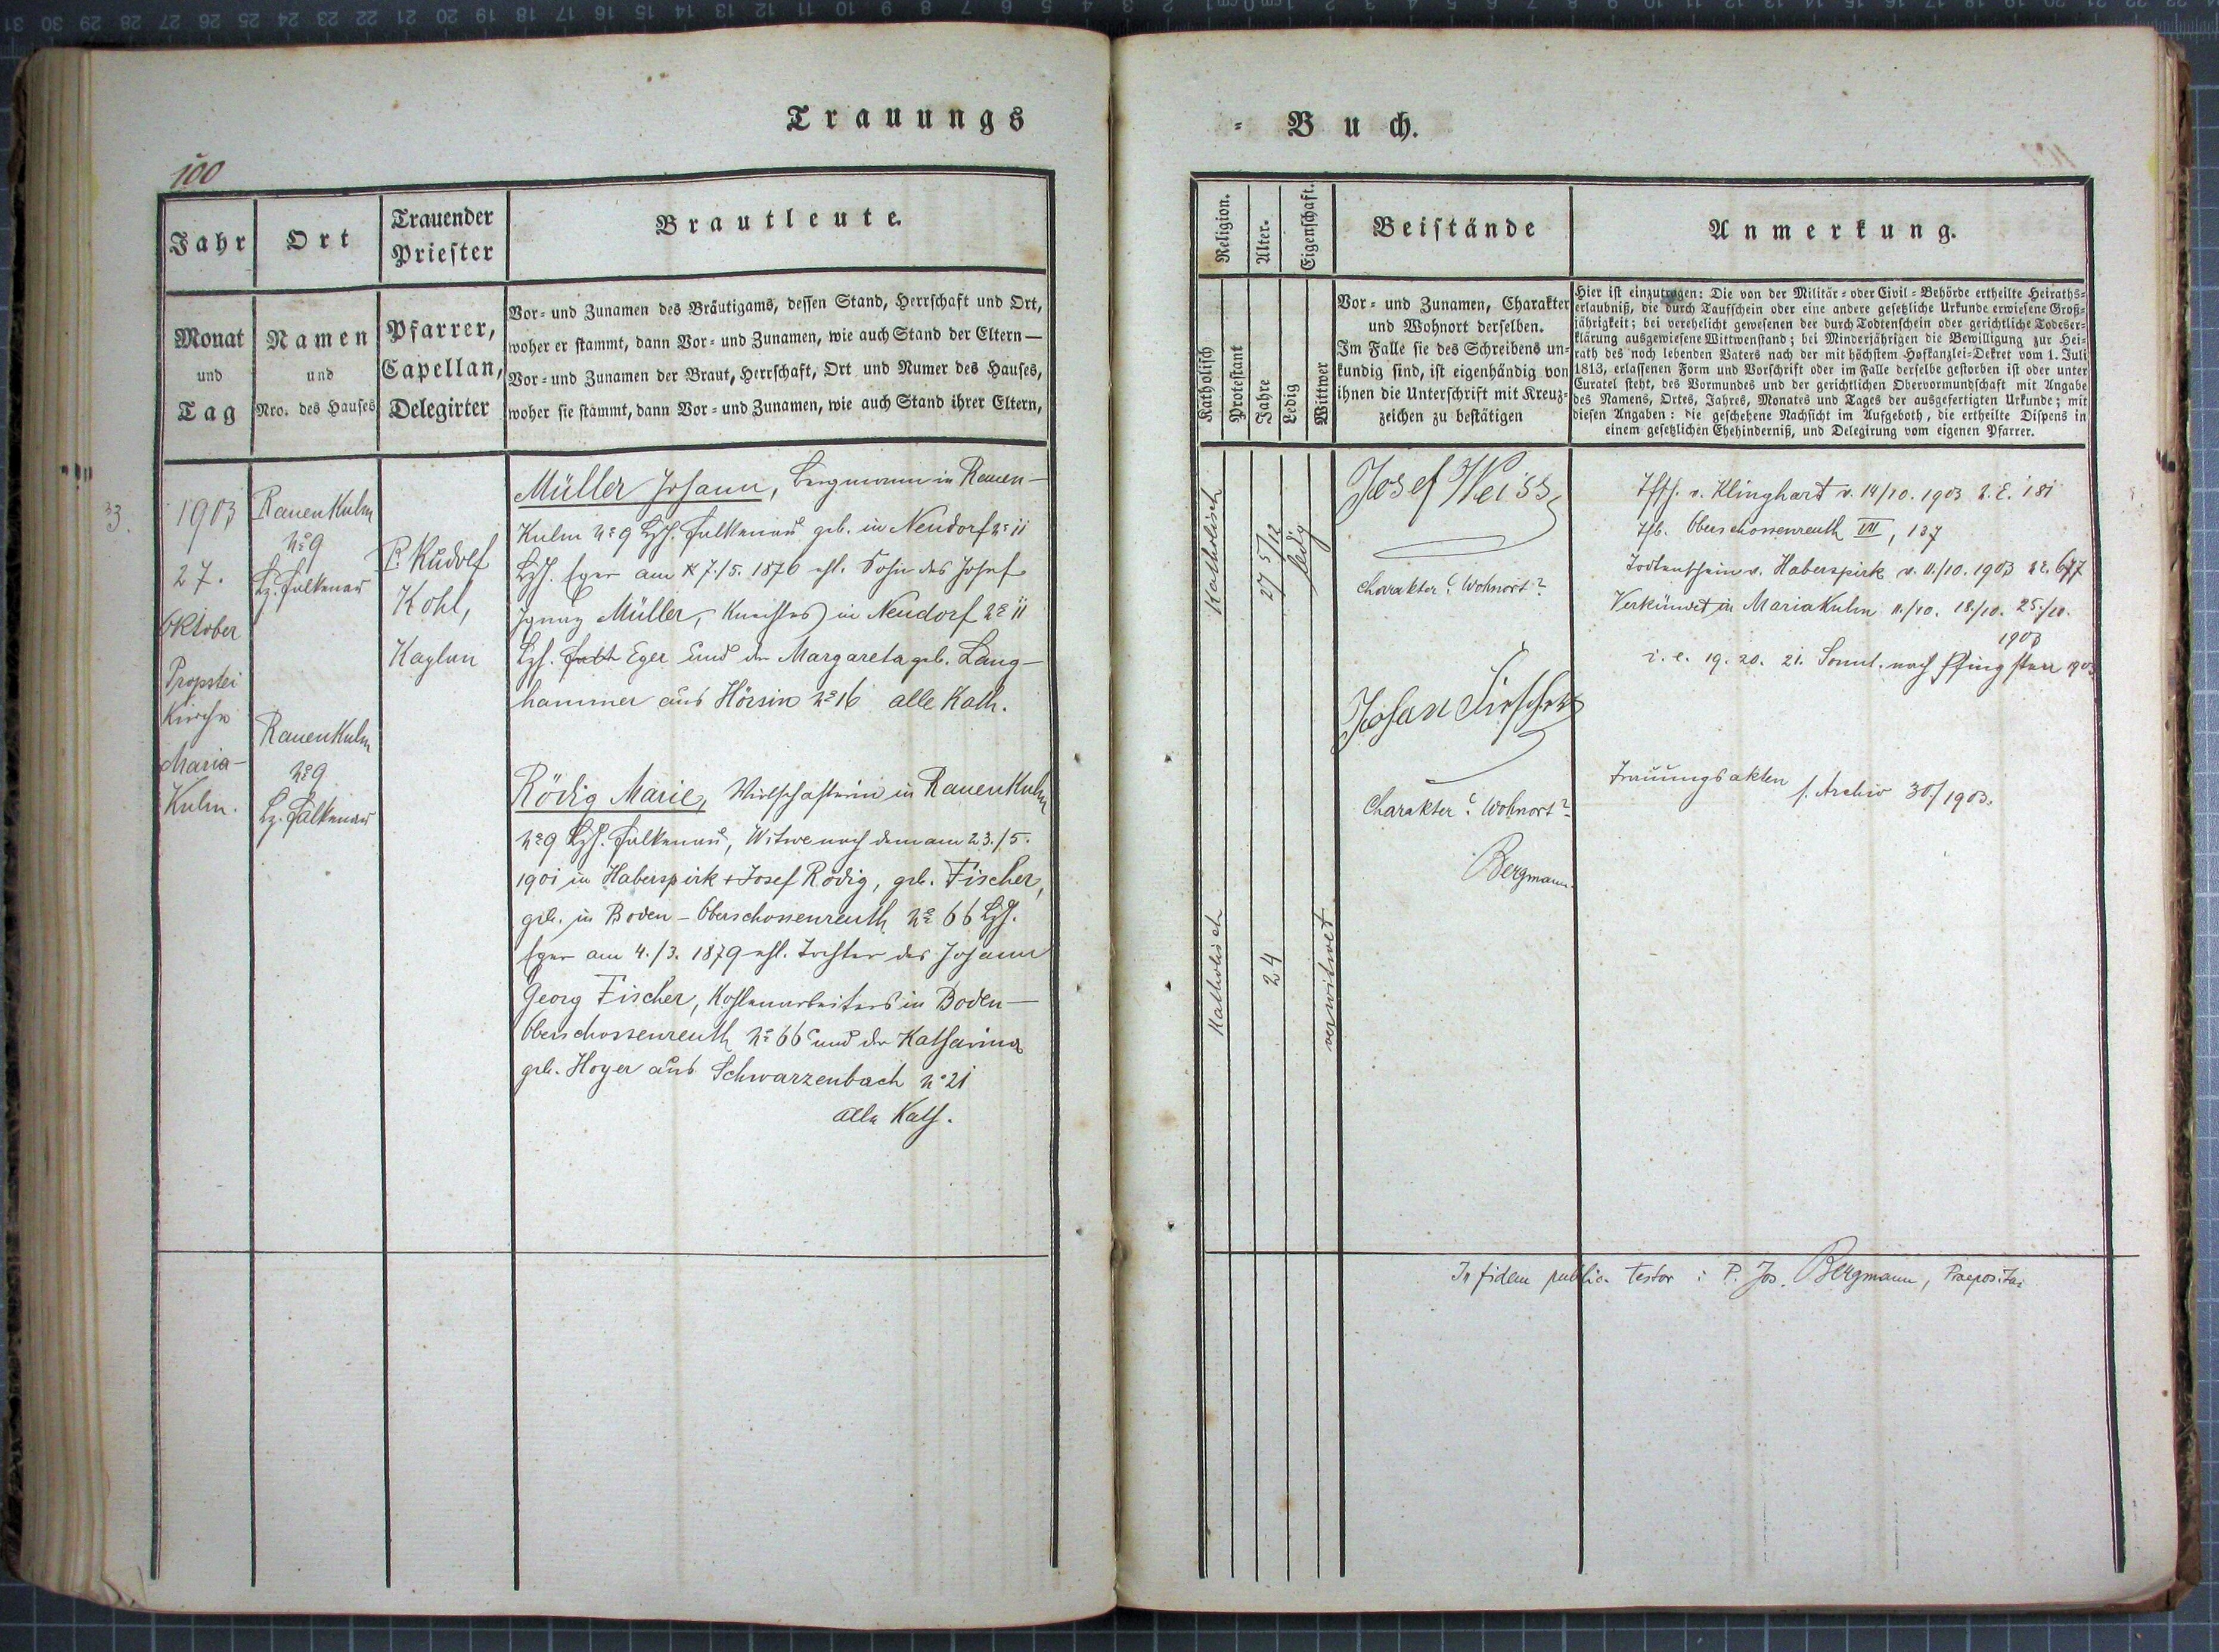 Trauungs
100
Jahr
Ort
Trauender
Priester
Brautleute.
Monat
und
Tag
Namen
und
Nro. des Hauses
Pfarrer,
Capellan,
Delegirter
Vor- und Zunamen des Bräutigams, dessen Stand, Herrschaft und Ort,
woher er stammt, dann Vor- und Zunamen, wie auch Stand der Eltern —
Vor- und Zunamen der Braut, Herrschaft, Ort und Numer des Hauses,
woher sie stammt, dann Vor- und Zunamen, wie auch Stand ihrer Eltern,
33.
1903
27.
Oktober
Propstei
Kirche
Maria-
Kulm.
RauenKulm
No 9
Bz. Falkenau
RauenKulm
No 9
Bz. Falkenau
P. Rudolf
Kohl,
Kaplan
Müller Johann, Bergmann in Rauen-
Kulm No 9 Bzh. Falkenau geb. in Neudorf No 11
Bzh. Eger am 7./5. 1876 ehl. Sohn des Josef
Ignaz Müller, in Neudorf No 11
Bzh. Falk Eger und der Margareta geb. Lang-
hammer aus Hörsin No 16 alle Kath.
Rödig Marie, Wirtschafterin in RauenKulm
No 9 Bzh. Falkenau, Witwe nach dem am 23./5.
1901 in Haberspirk + Josef Rödig, geb. Fischer,
geb. in Boden - Oberschossenreuth No 66 Bzh.
Eger am 4./3. 1879 ehl. Tochter des Johann
Georg Fischer, Kohlenarbeiters in Boden-
Oberschossenreuth No 66 und der Katharina
geb. Hoyer aus Schwarzenbach No 21
alle Kath.
- Buch.
Religion.
Alter.
Eigenschaft.
Beistände
Anmerkung.
Katholisch
Protestant
Jahre
Ledig
Wittwer
Vor- und Zunamen, Charakter
und Wohnort derselben.
Im Falle sie des Schreibens un-
kundig sind, ist eigenhändig von
ihnen die Unterschrift mit Kreuz-
zeichen zu bestätigen
Hier ist einzutragen: Die von der Militär- oder Civil-Behörde ertheilte Heiraths-
erlaubniß, die durch Taufschein oder eine andere gesetzliche Urkunde erwiesene Groß-
jährigkeit; bei verehelicht gewesenen der durch Todtenschein oder gerichtliche Todeser-
klärung ausgewiesene Wittwenstand; bei Minderjährigen die Bewilligung zur Hei-
rath des noch lebenden Vaters nach der mit höchstem Hofkanzlei-Dekret vom 1. Juli
1813, erlassenen Form und Vorschrift oder im Falle derselbe gestorben ist oder unter
Curatel steht, des Vormundes und der gerichtlichen Obervormundschaft mit Angabe
des Namens, Ortes, Jahres, Monates und Tages der ausgefertigten Urkunde; mit
diesen Angaben: die geschehene Nachsicht im Aufgeboth, die ertheilte Dispens in
einem gesetzlichen Ehehinderniß, und Delegirung vom eigenen Pfarrer.
Katholisch
27 5/12
ledig
Josef Weiss
Charakter? Wohnort?
Johan
Charakter? Wohnort?
Bergmann.
Katholisch
24
verwitwet
v. Klinghart v. 14/10. 1903 Z.E. 181
Oberschossenreuth VII, 137
Todtenschein v. Haberspirk v. 11./10. 1903
Verkündet in MariaKulm 11./10. 18./10. 25./10.
1903
i. e. 19. 20. 21. Sonnt. nach Pfingsten 1903
Trauungsakten s. Archiv 30./1903.
In fidem public. testor: P. Jos. Bergmann,